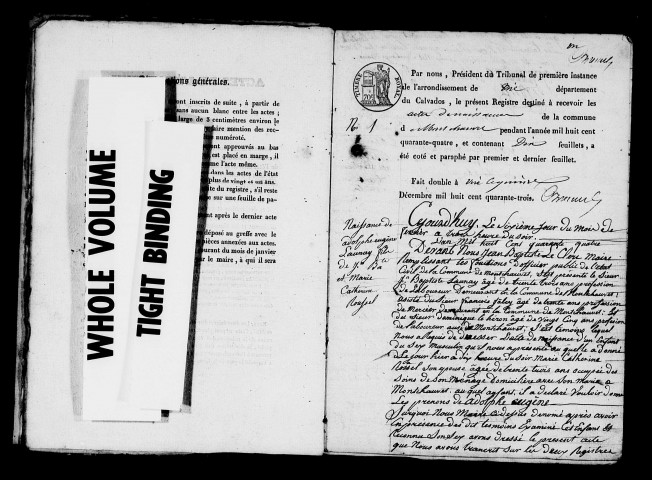 ons générales.
ont inscrits de suite, à partir de
sans aucun blanc entre les actes ;
large de 8 centimètres environ le
faire mention des rec-
numéroté.
approuvés au bas
est placé en marge, il
l'acte même.
dans les actes de l'état
plus de vingt et un ans.
du registre, s'il reste
sur une feuille de pa-
ent après le dernier acte
déposé au greffe avec le
pièces annexées aux actes.
courant du mois de janvier
par le maire, à qui il sera
WHOLE VOLUME
TIGHT BINDING
TIMBRE ROYAL
No 1
Par nous, Président du Tribunal de première instance
de l'arrondissement de Vire département
du Calvados, le présent Registre destiné à recevoir les
actes de naissance de la commune
d Montchauvet pendant l'année mil huit cent
quarante-quatre, et contenant Dix feuillets, a
été coté et paraphé par premier et dernier feuillet.
Fait double à Vire
Décembre mil huit cent quarante-trois.
Naissance de
adolphe eugène
Launay fils
de J. Ba
et Marie
Catherine
Rossel
Aujourd'huy Le Sixième jour du Mois de
février à trois heures du soir
L'an Mil huit Cent quarante quatre
Devant Nous Jean Baptiste Le Clore Maire
Remplissant les fonctions d'officier public de l'état
Civil de la Commune de Montchauvet, s'est présenté le Sieur
J. Baptiste Launay âgé de trente trois ans profession
de Laboureur Demeurant en la Commune de Montchauvet;
assisté du Sieur françois faley âgé de trente ans profession
de Mercier demeurant en la Commune de Montchauvet; Et
du Sieur dominique le héron âgé de Vingt Cinq ans profession
de laboureur aussi de Montchauvet, tesmoins lequel
Nous a Requis de dresser L'acte de naissance d'un Enfant
du Sexe Masculin qu'il nous a présenté au quelle a donné
Le jour hier à dix heures du soir Marie Catherine
Rossel Son épouse âgée de trente trois ans occupée des
Soins de Son Ménage Domiciliée avec Son Mari à
Montchauvet, au quel enfant, il a déclaré Vouloir donner
Les prenoms de adolphe eugène
Surquoi Nous Maire Cidessus denommé après avoir
En présence des dit tesmoins Examiné l'Enfant Et
Reconnu Son Sexe avons dressé le présent acte
que Nous avons transcrit Sur les deux Registres